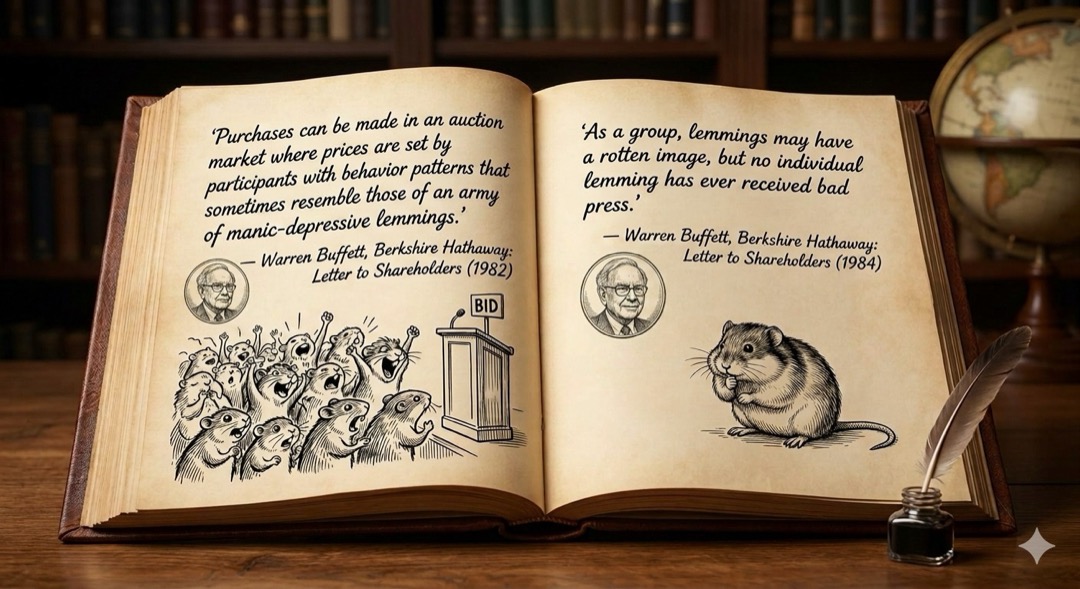 ‘Purchases can be made in an auction
market where prices are set by
participants with behavior patterns that
sometimes resemble those of an army
of manic-depressive lemmings.’
— Warren Buffett, Berkshire Hathaway:
Letter to Shareholders (1982)
BID
‘As a group, lemmings may have
a rotten image, but no individual
lemming has ever received bad
press.’
— Warren Buffett, Berkshire Hathaway:
Letter to Shareholders (1984)